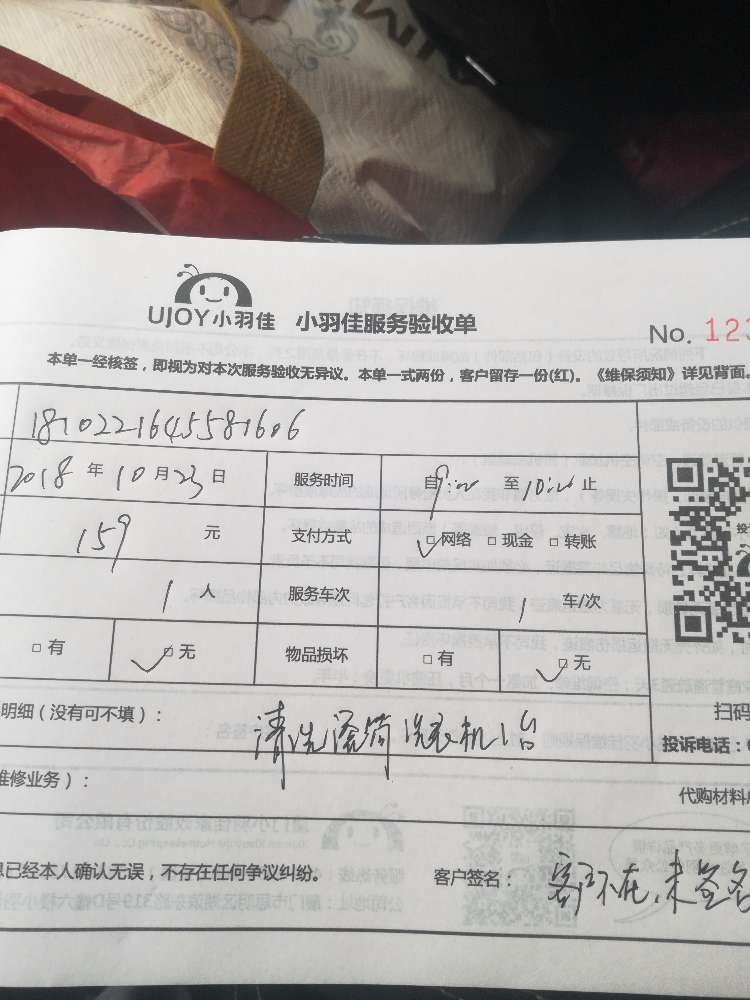 UJOY小羽佳 小羽佳服务验收单
No. 123
本单一经核签，即视为对本次服务验收无异议。本单一式两份，客户留存一份(红)。《维保须知》详见背面。
1810221645581606
2018 年 10 月 23 日 服务时间 自9:00 至10:00止
159 元 支付方式 网络 □现金 □转账
1 人 服务车次 1 车/次
□有 □无 物品损坏 □有 □无
扫码
明细（没有可不填）： 清洗滚筒洗衣机1台
投诉电话：
维修业务）：
代购材料
已经本人确认无误，不存在任何争议纠纷。 客户签名： 客户不在,未签名